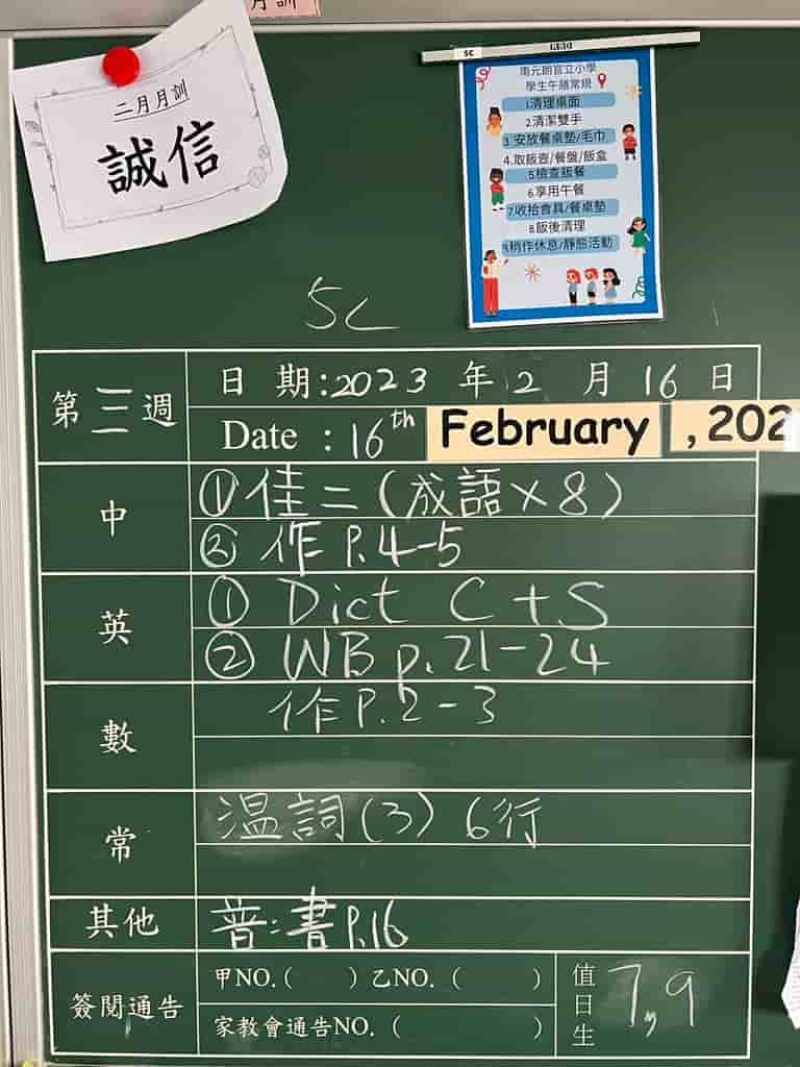 月訓
二月月訓
誠信
5C
南元朗官立小學
學生午膳常規
1.清理桌面
2.清潔雙手
3.安放餐桌墊/毛巾
4.取飯壺/餐盤/飯盒
5.檢查飯餐
6.享用午餐
7.收拾食具/餐桌墊
8.飯後清理
9.稍作休息/靜態活動
5C
第三週
日期:2023年2月16日
Date : 16th February , 202
中
①佳二(成語×8)
② 作 P.4-5
英
① Dict C + S
② WB p.21-24
數
作 P.2-3
常
温詞(3) 6行
其他
普:書P.16
簽閱通告
甲NO.( ) 乙NO.( )
家教會通告NO.( )
值日生
7,9